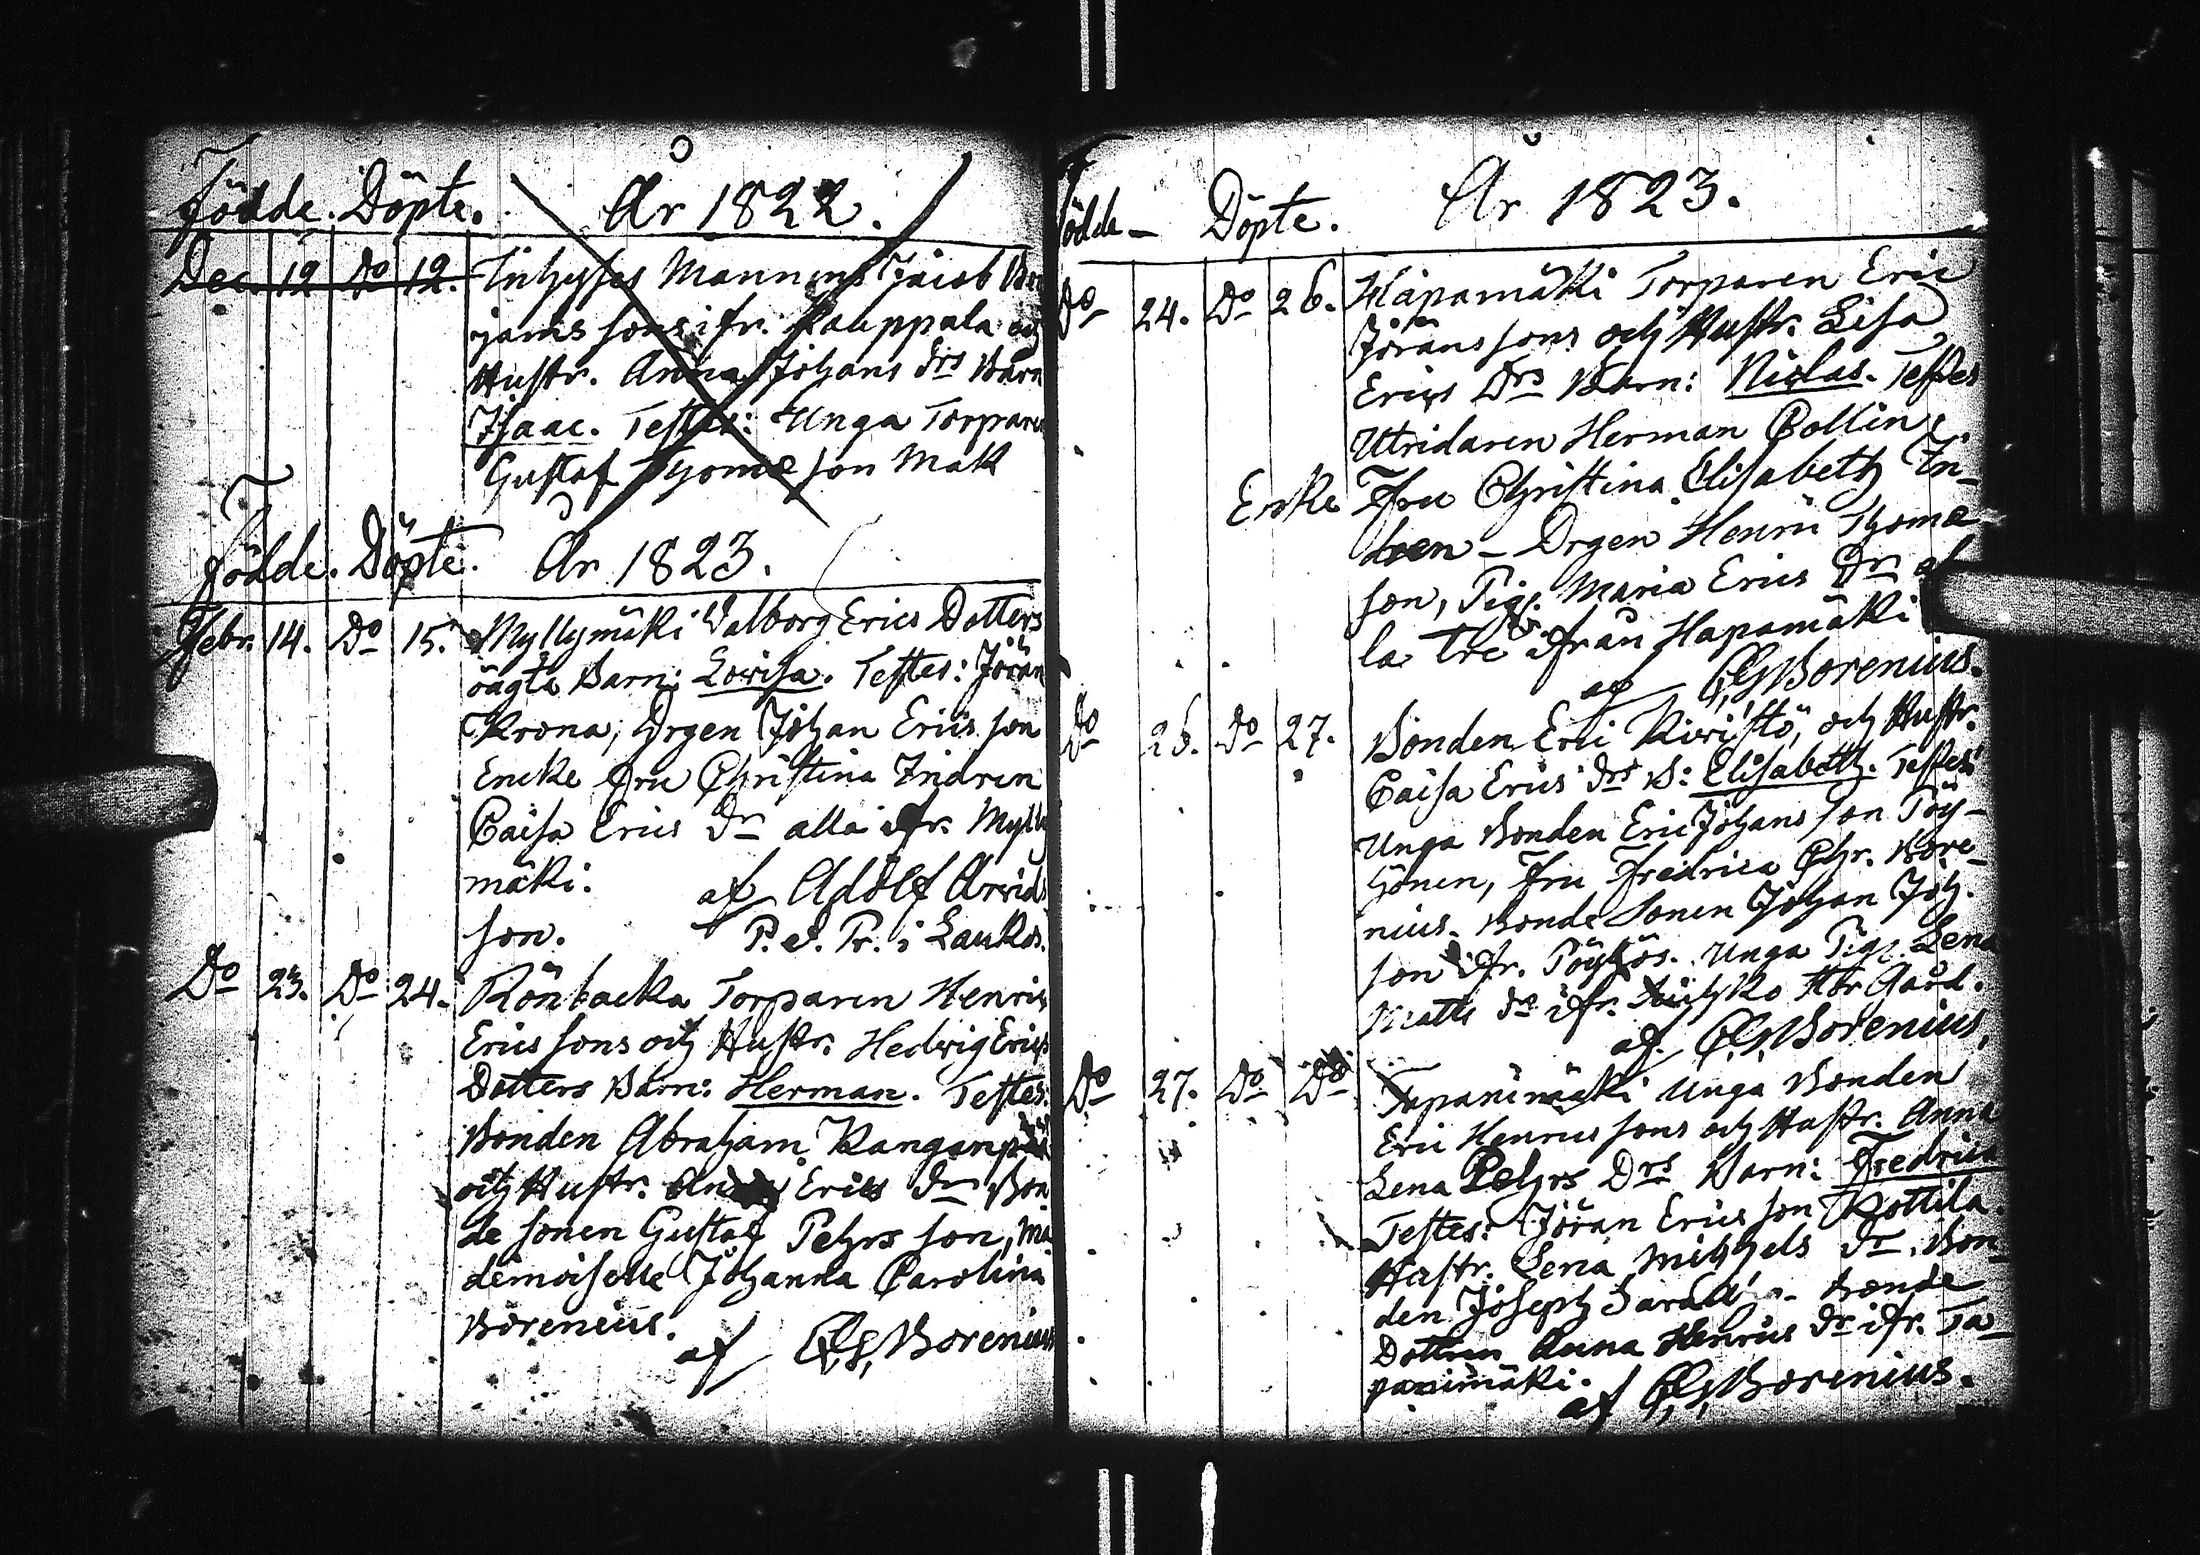 Födde. Döpte. År 1822.
Dec. 12 Do 12. Inhyses Mannens Jacob Ben
jams sons ifr. Kauppala och
Hustr. Anna Johans drs Barn
Isaac. Testes: Unga Torparen
Gustaf Thomæ son Mak
Födde. Döpte. År 1823.
Febr. 14. Do 15. Myllymäki Valborg Erics Dotters
oägta Barn: Lovisa. Testes: Jöran
Krona, Drgen Johan Erics son
Encke fru Christina Indrén
Caisa Erics Dr alla ifr. Mylly
mäki. af Adolf Arvids
son. P. e. Pr. i Laukas.
Do 23. Do 24. Rönbacka Torparen Henric
Erics sons och Hustr. Hedvig Erics
Dotters Barn: Herman. Testes:
Bonden Abraham
och Hustr. Erics dr Bon
de sonen Gustaf Pehrs son, Ma
demoiselle Johanna Carolina
Borenius.
af CG Borenius
Födde - Döpte. År 1823.
Do 24. Do 26. Hapamäki Torparen Eric
Jörans sons och Hustr. Lisa
Erics Drs Barn: Niclas. Testes
Utridaren Herman Collin,
Enke Fru Christina Elisabeth In-
dreen - Drgen Henric Thomæ
son, Pig. Maria Erics Dr al
la tre ifrån Hapamäki
af CG Borenius.
Do 26. Do 27. Bonden Eric Kivistö, och Hustr.
Caisa Erics drs B: Elisabeth. Testes:
Unga Bonden Eric Johans son Pöy-
hönen, Fru Fredrica Chr. Bore-
nius. Bonde Sonen Johan Joh.
son ifr. Pöyhös. Unga Pig. Lena
Matts dr ifr. Hr Gård.
af CG Borenius,
Do 27. Do Do Tapanimäki Unga Bonden
Eric Henrics sons och Hustr. Anna
Lena Pehrs Drs Barn: Fredrica
Testes: Jöran Erics son Kottila.
Hustr. Lena Michels dr. Bon-
den Joseph - Bonde
Dottren Anna Henrics dr ifr. Ta-
panimäki.
af CG Borenius.